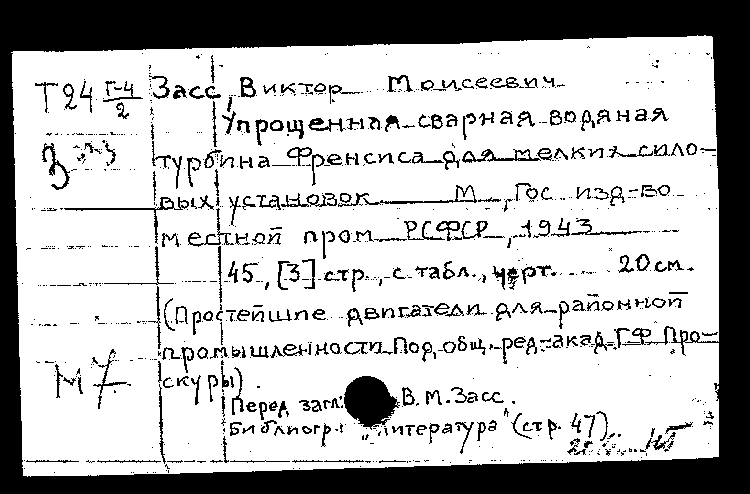 Т24 Г-4/2 Засс, Виктор Моисеевич
Упрощенная сварная водяная
З турбина Френсиса для мелких сило-
вых установок М., Гос изд-во
местной пром РСФСР, 1943
45, [3] стр., с табл., черт. 20 см.
(Простейшие двигатели для районной
промышленности Под общ. ред. акад. Г.Ф. Про-
М7 скуры).
Перед загл: В.М. Засс.
Библиогр.: "Литература" (стр. 47)